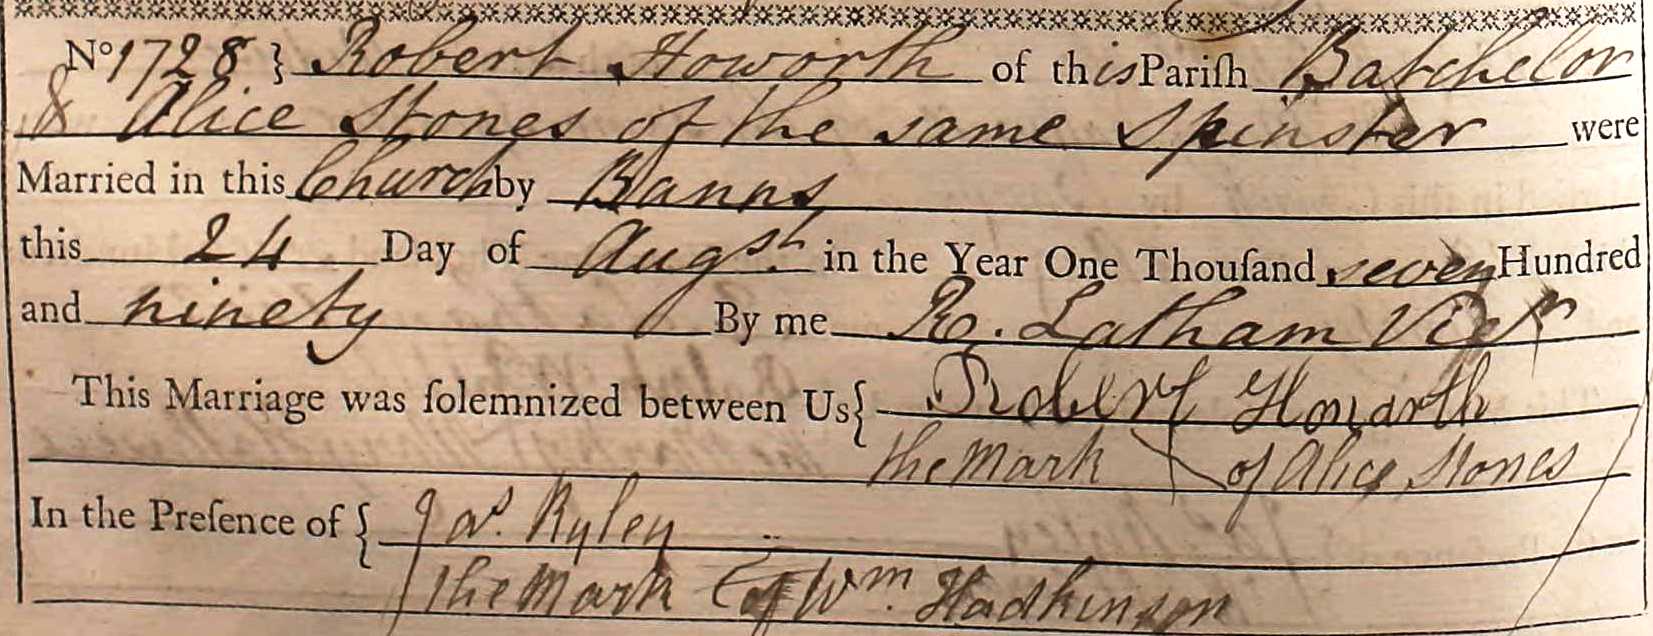 No 1728 } Robert Howorth of this Pariſh Batchelor
& Alice Stones of the same Spinster were
Married in this Church by Banns
this 24 Day of Augst. in the Year One Thouſand seven Hundred
and ninety By me R. Latham Vicr
This Marriage was ſolemnized between Us { Robert Howarth
the Mark X of Alice Stones
In the Preſence of { Jas. Ryley
the Mark of Wm. Hadkinson